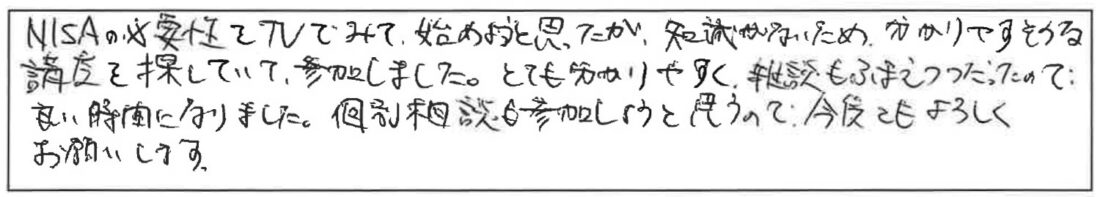 NISAの必要性をTVでみて、始めようと思ったが、知識がないため、分かりやすそうな
講座を探していて、参加しました。とても分かりやすく、雑談もふまえつつだったので、
良い時間になりました。個別相談も参加しようと思うので、今後ともよろしく
お願いします。